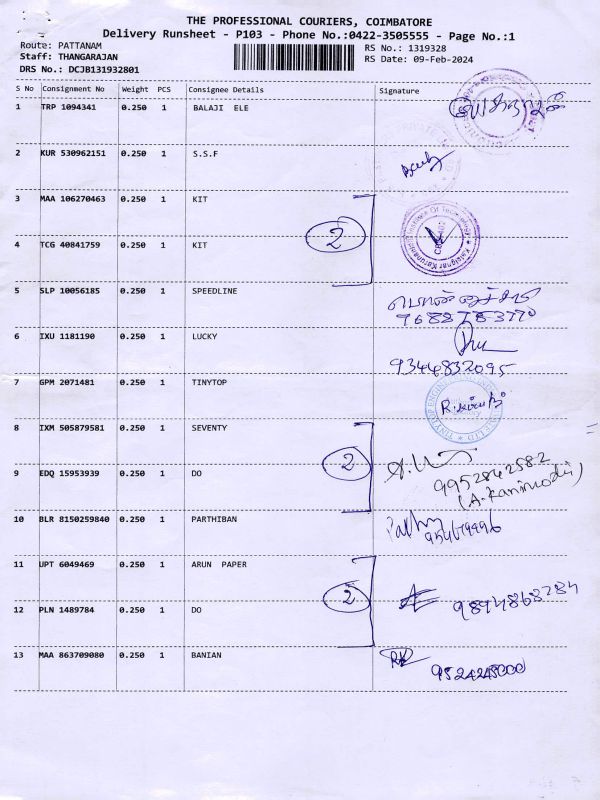 THE PROFESSIONAL COURIERS, COIMBATORE
Delivery Runsheet - P103 - Phone No.:0422-3505555 - Page No.:1
Route: PATTANAM RS No.: 1319328
Staff: THANGARAJAN RS Date: 09-Feb-2024
DRS No.: DCJB131932801
S No Consignment No Weight PCS Consignee Details Signature
1 TRP 1094341 0.250 1 BALAJI ELE
2 KUR 530962151 0.250 1 S.S.F
3 MAA 106270463 0.250 1 KIT
2
4 TCG 40841759 0.250 1 KIT
5 SLP 10056185 0.250 1 SPEEDLINE
9688783770
6 IXU 1181190 0.250 1 LUCKY
9344832095
7 GPM 2071481 0.250 1 TINYTOP
8 IXM 505879581 0.250 1 SEVENTY
2
9 EDQ 15953939 0.250 1 DO 9952842582
(A. Kanimozhi)
10 BLR 8150259840 0.250 1 PARTHIBAN
11 UPT 6049469 0.250 1 ARUN PAPER
2 9894868284
12 PLN 1489784 0.250 1 DO
13 MAA 863709080 0.250 1 BANIAN
9524245000